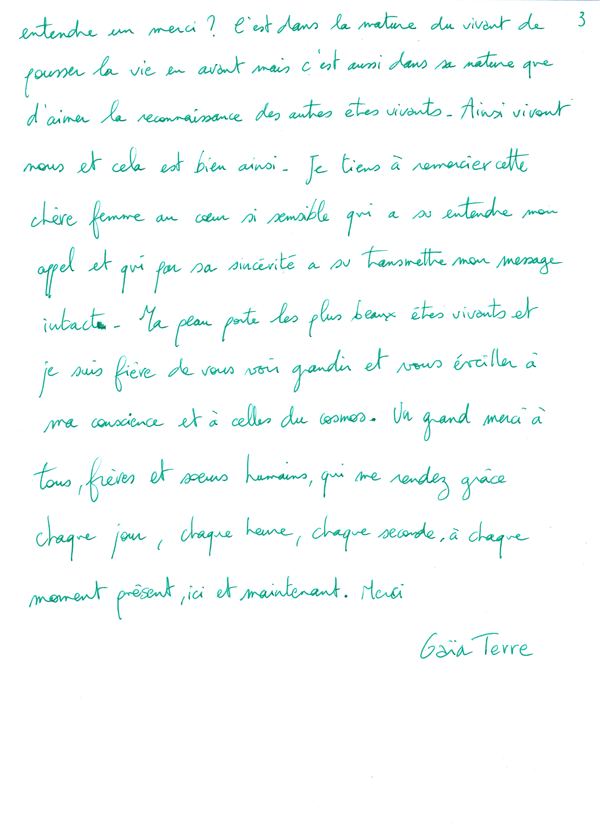 entendre un merci ? C'est dans la nature du vivant de 3
pousser la vie en avant mais c'est aussi dans sa nature que
d'aimer la reconnaissance des autres êtes vivants. Ainsi vivont
nous et cela est bien ainsi. Je tiens à remercier cette
chère femme au cœur si sensible qui a su entendre mon
appel et qui par sa sincérité a su transmettre mon message
intact. Ma peau porte les plus beaux êtes vivants et
je suis fière de vous voir grandir et vous éveiller à
ma conscience et à celles du cosmos. Un grand merci à
tous, frères et sœurs humains, qui me rendez grâce
chaque jour, chaque heure, chaque seconde, à chaque
moment présent, ici et maintenant. Merci
Gaïa Terre